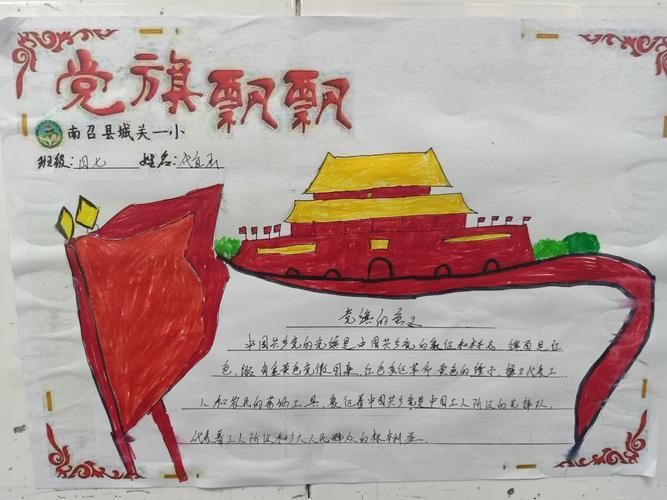 党旗飘飘
南召县城关一小
班级:四七 姓名:代宜
党旗的意义
中国共产党的党旗是中国共产党的象征和标志 旗面是红
色,缀有金黄色党徽图案,红色象征革命 黄色的锤子、镰刀代表工
人和农民的劳动工具,象征着中国共产党是中国工人阶级的先锋队,
代表着工人阶级和广大人民群众的根本利益.